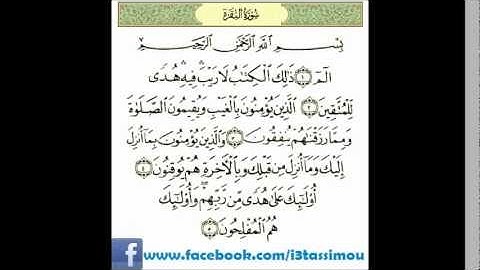 سُورَةُ البَقَرَةِ
بِسْمِ اللَّهِ الرَّحْمَٰنِ الرَّحِيمِ
الٓمٓ ۝١ ذَٰلِكَ الْكِتَٰبُ لَا رَيْبَ ۛ فِيهِ ۛ هُدًى
لِّلْمُتَّقِينَ ۝٢ الَّذِينَ يُؤْمِنُونَ بِالْغَيْبِ وَيُقِيمُونَ الصَّلَوٰةَ
وَمِمَّا رَزَقْنَٰهُمْ يُنفِقُونَ ۝٣ وَالَّذِينَ يُؤْمِنُونَ بِمَا أُنزِلَ
إِلَيْكَ وَمَا أُنزِلَ مِن قَبْلِكَ وَبِالْآخِرَةِ هُمْ يُوقِنُونَ ۝٤
أُوْلَٰٓئِكَ عَلَىٰ هُدًى مِّن رَّبِّهِمْ ۖ وَأُوْلَٰٓئِكَ
هُمُ الْمُفْلِحُونَ ۝٥
f www.facebook.com/i3tassimou